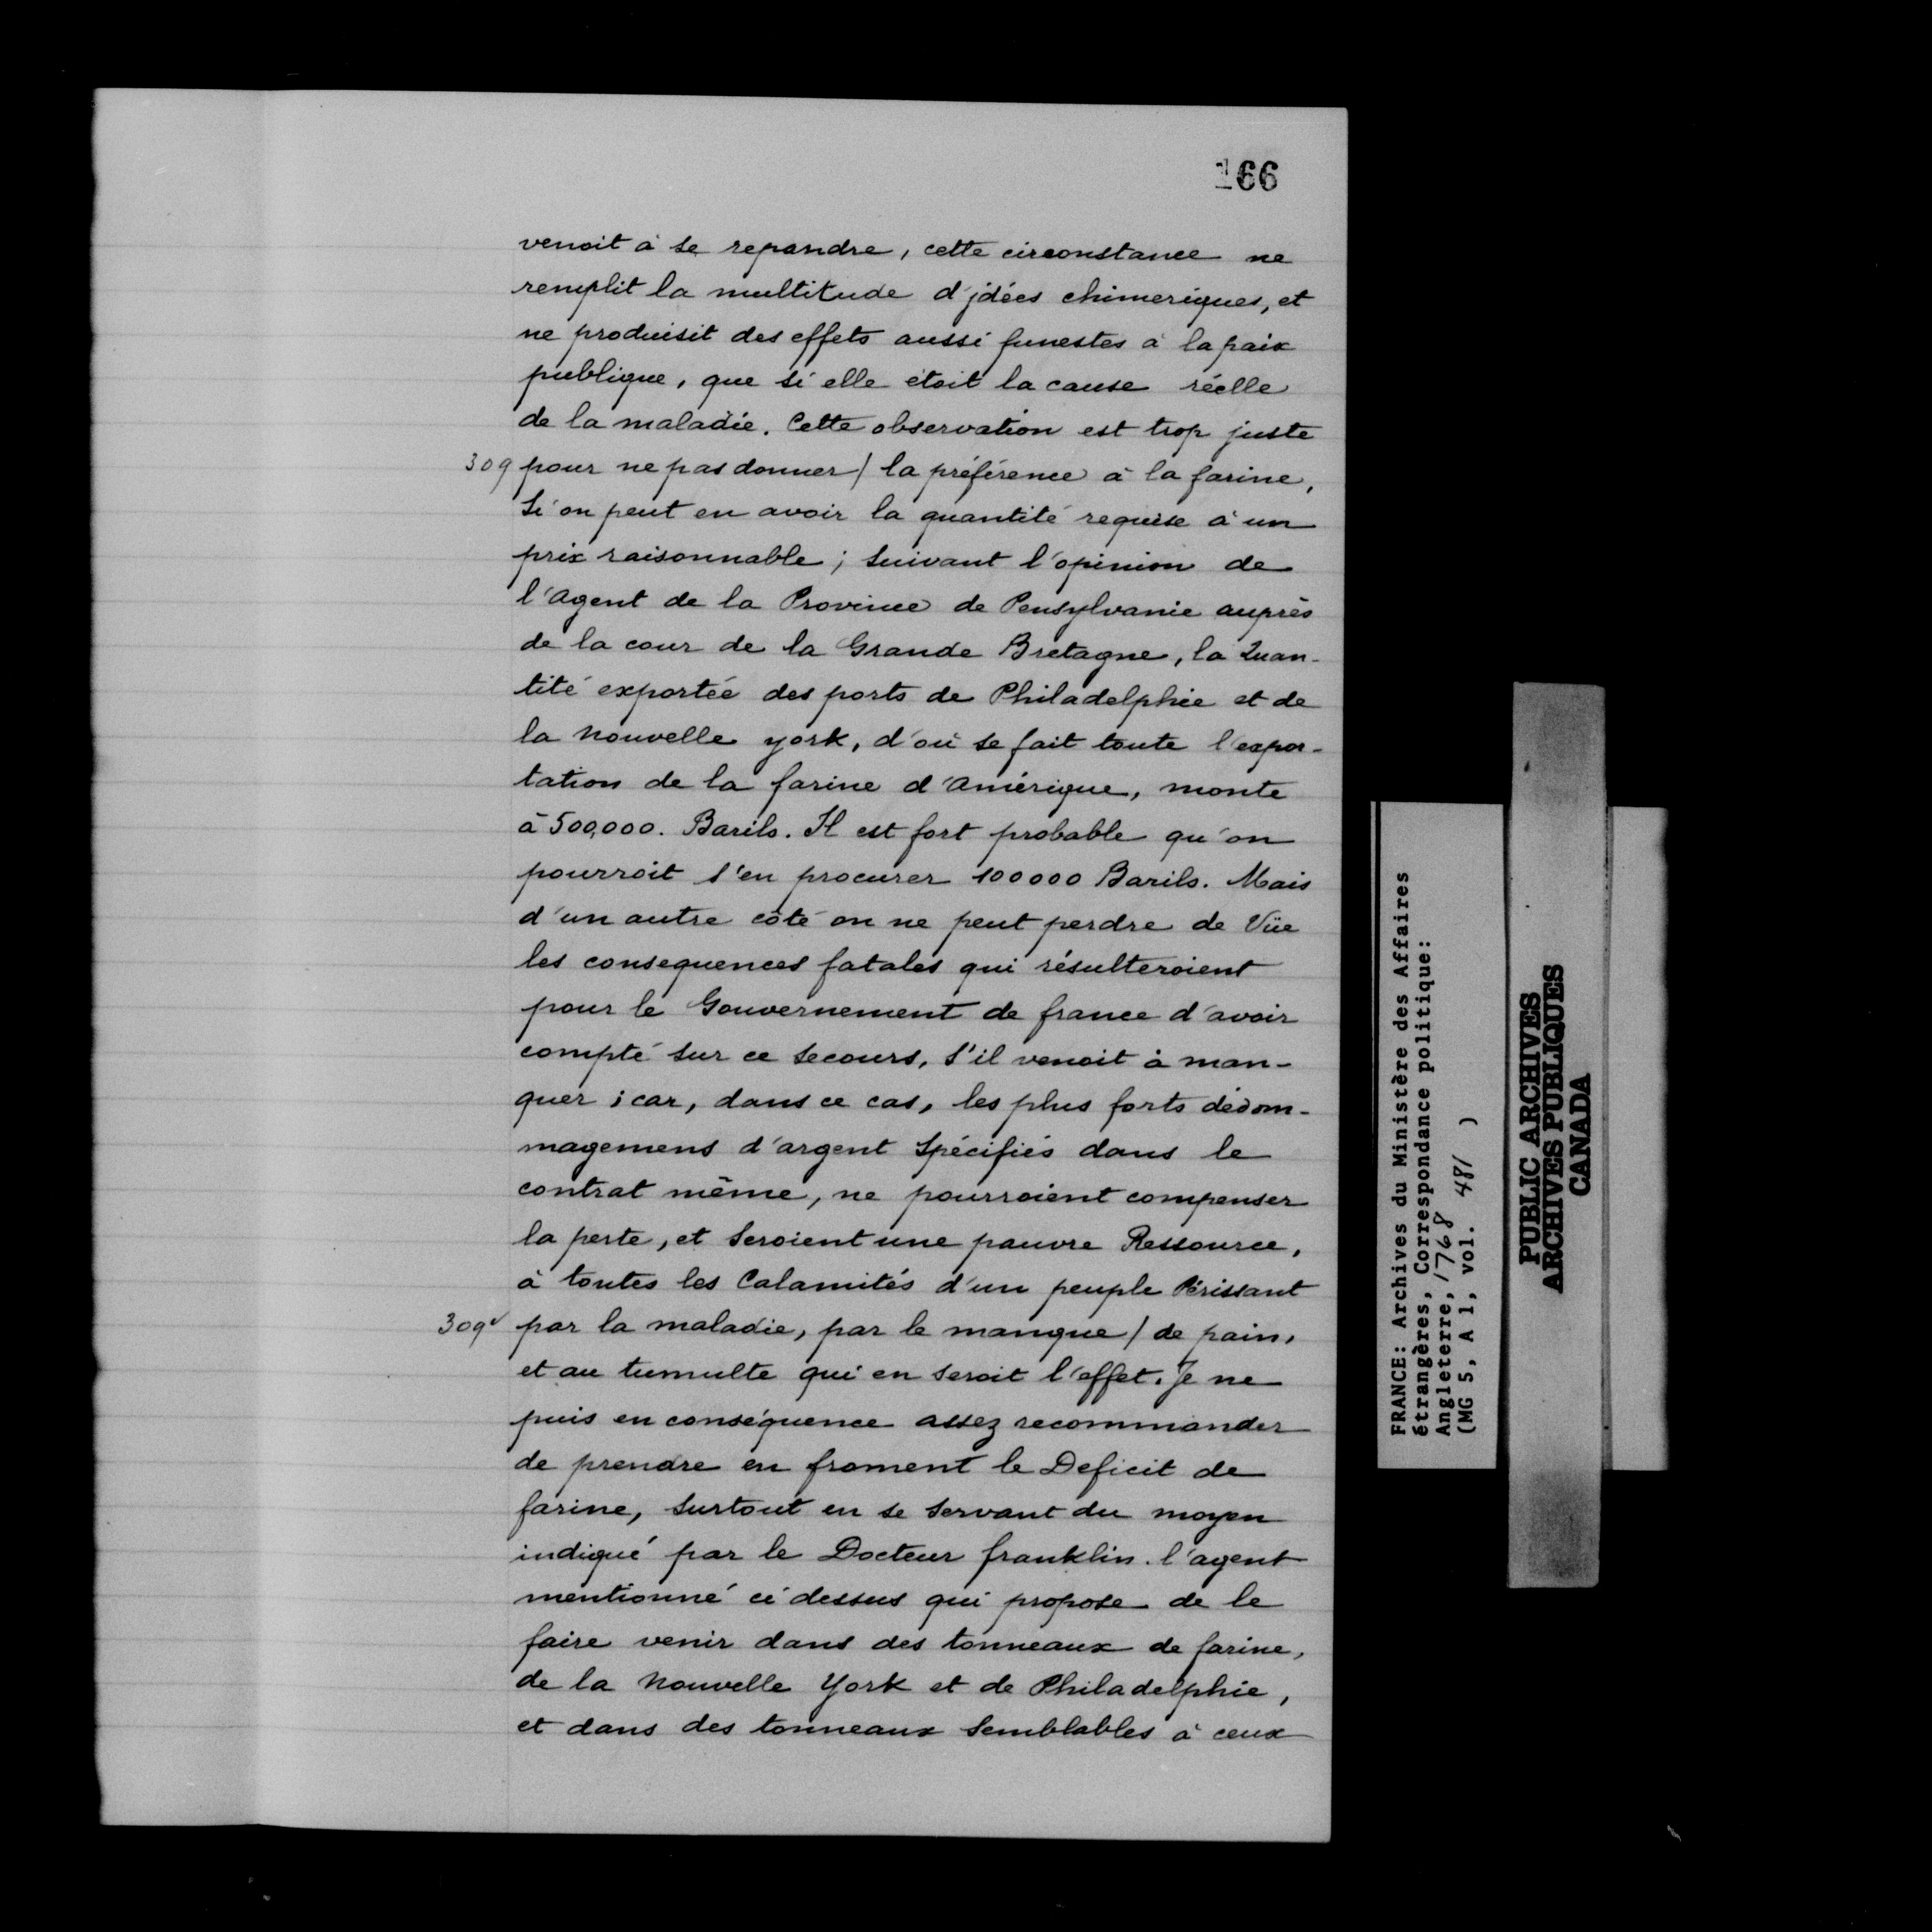 166
venoit à se repandre, cette circonstance ne
remplit la multitude d'jdées chimeriques, et
ne produisit des effets aussi funestes à la paix
publique, que si elle étoit la cause réelle
de la maladie. Cette observation est trop juste
309 pour ne pas donner / la préférence à la farine,
Si on peut en avoir la quantité requise à un
prix raisonnable; suivant l'opinion de
l'agent de la Province de Pensylvanie auprès
de la cour de la Grande Bretagne, la Quan-
tité exportée des ports de Philadelphie et de
la nouvelle york, d'où se fait toute l'expor-
tation de la farine d'Amérique, monte
à 500,000. Barils. Il est fort probable qu'on
pourroit s'en procurer 100000 Barils. Mais
d'un autre côté on ne peut perdre de Vüe
les consequences fatales qui résulteroient
pour le Gouvernement de france d'avoir
compté sur ce secours, s'il venoit à man-
quer; car, dans ce cas, les plus forts dédom-
magemens d'argent Spécifiés dans le
contrat même, ne pourroient compenser
la perte, et seroient une pauvre Ressource,
à toutes les Calamités d'un peuple Périssant
309v par la maladie, par le manque / de pain,
et au tumulte qui en seroit l'effet. Je ne
puis en conséquence assez recommander
de prendre en froment le Deficit de
farine, surtout en se servant du moyen
indiqué par le Docteur franklin. l'agent
mentionné ci dessus qui propose de le
faire venir dans des tonneaux de farine,
de la Nouvelle York et de Philadelphie,
et dans des tonneaux semblables à ceux
FRANCE: Archives du Ministère des Affaires
étrangères, Correspondance politique:
Angleterre, 1768
(MG 5, A 1, vol. 481 )
PUBLIC ARCHIVES
ARCHIVES PUBLIQUES
CANADA